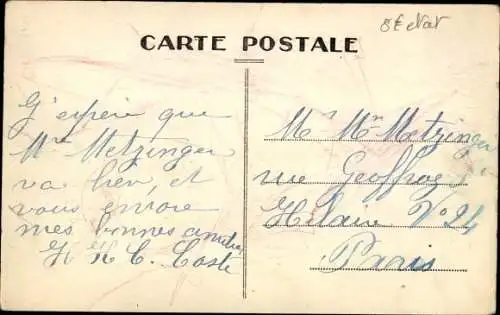 8€ état
CARTE POSTALE
J'espère que
Mr Metzinger
va bien, et
vous envoie
mes bonnes amitiés
H. C. Coste
Mr Mme Metzinger
rue Geoffroy
Hilaire No 24
Paris